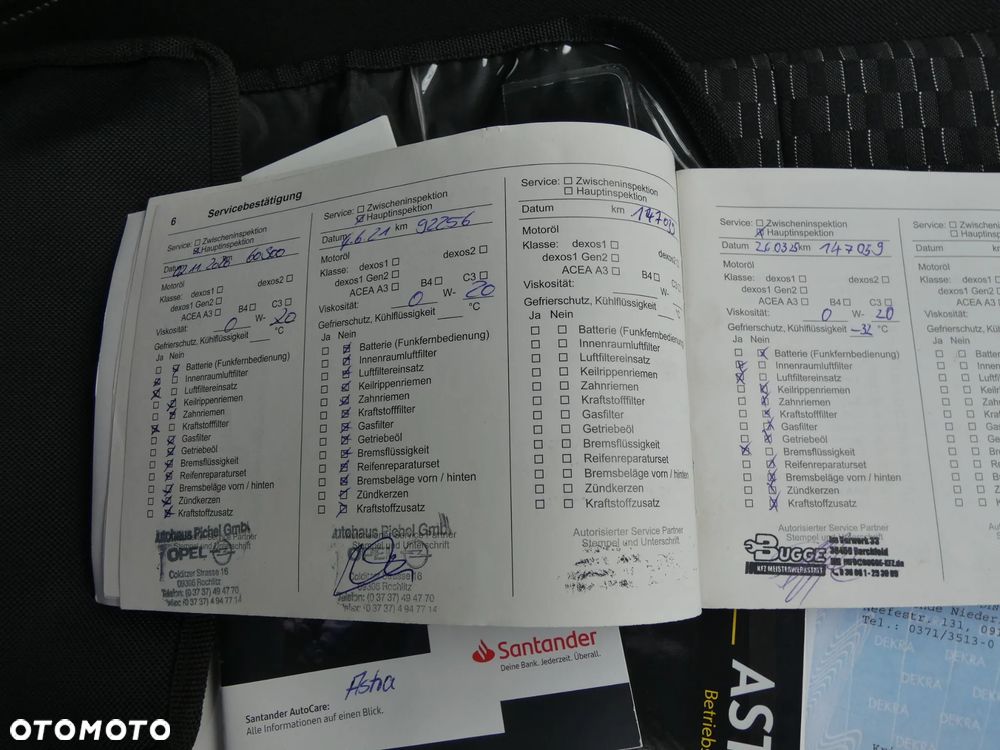 6 Servicebestätigung
Service: Zwischeninspektion
Hauptinspektion
Datum 02.11.2020 60.300
Motoröl
Klasse: dexos1 dexos2
dexos1 Gen2
ACEA A3 B4 C3
Viskosität: 0 W- 20
Gefrierschutz, Kühlflüssigkeit °C
Ja Nein
Batterie (Funkfernbedienung)
Innenraumluftfilter
Luftfiltereinsatz
Keilrippenriemen
Zahnriemen
Kraftstofffilter
Gasfilter
Getriebeöl
Bremsflüssigkeit
Reifenreparaturset
Bremsbeläge vorn / hinten
Zündkerzen
Kraftstoffzusatz
Autohaus Pichel GmbH
OPEL
Colditzer Strasse 16
09306 Rochlitz
Telefon: (0 37 37) 49 47 70
Telefax: (0 37 37) 4 94 77 14
Service: Zwischeninspektion
Hauptinspektion
Datum 7.6.21 km 92256
Motoröl
Klasse: dexos1 dexos2
dexos1 Gen2
ACEA A3 B4 C3
Viskosität: 0 W- 20
Gefrierschutz, Kühlflüssigkeit °C
Ja Nein
Batterie (Funkfernbedienung)
Innenraumluftfilter
Luftfiltereinsatz
Keilrippenriemen
Zahnriemen
Kraftstofffilter
Gasfilter
Getriebeöl
Bremsflüssigkeit
Reifenreparaturset
Bremsbeläge vorn / hinten
Zündkerzen
Kraftstoffzusatz
Autohaus Pichel GmbH
Stempel und Unterschrift
Colditzer Strasse 16
09306 Rochlitz
Telefon: (0 37 37) 49 47 70
Telefax: (0 37 37) 4 94 77 14
Service: Zwischeninspektion
Hauptinspektion
Datum km 147039
Motoröl
Klasse: dexos1 dexos2
dexos1 Gen2
ACEA A3 B4 C3
Viskosität: W-
Gefrierschutz, Kühlflüssigkeit
Ja Nein
Batterie (Funkfernbedienung)
Innenraumluftfilter
Luftfiltereinsatz
Keilrippenriemen
Zahnriemen
Kraftstofffilter
Gasfilter
Getriebeöl
Bremsflüssigkeit
Reifenreparaturset
Bremsbeläge vorn / hinten
Zündkerzen
Kraftstoffzusatz
Autorisierter Service Partner
Stempel und Unterschrift
Service: Zwischeninspektion
Hauptinspektion
Datum 26.03.25 km 147039
Motoröl
Klasse: dexos1 dexos2
dexos1 Gen2
ACEA A3 B4 C3
Viskosität: 0 W- 20
Gefrierschutz, Kühlflüssigkeit -32 °C
Ja Nein
Batterie (Funkfernbedienung)
Innenraumluftfilter
Luftfiltereinsatz
Keilrippenriemen
Zahnriemen
Kraftstofffilter
Gasfilter
Getriebeöl
Bremsflüssigkeit
Reifenreparaturset
Bremsbeläge vorn / hinten
Zündkerzen
Kraftstoffzusatz
Autorisierter Service Partner
Stempel und Unterschrift
BUGGE
KFZ MEISTERWERKSTATT
Service:
Datum
Motoröl
Klasse: dexos1
dexos1 Gen2
ACEA A3
Viskosität:
Gefrierschutz, Kühlflüssigkeit
Ja Nein
Santander
Deine Bank. Jederzeit. Überall.
Astra
Santander AutoCare:
Alle Informationen auf einen Blick.
AST
Betriebs
Tel.: 0371/3513-0
DEKRA
OTOMOTO